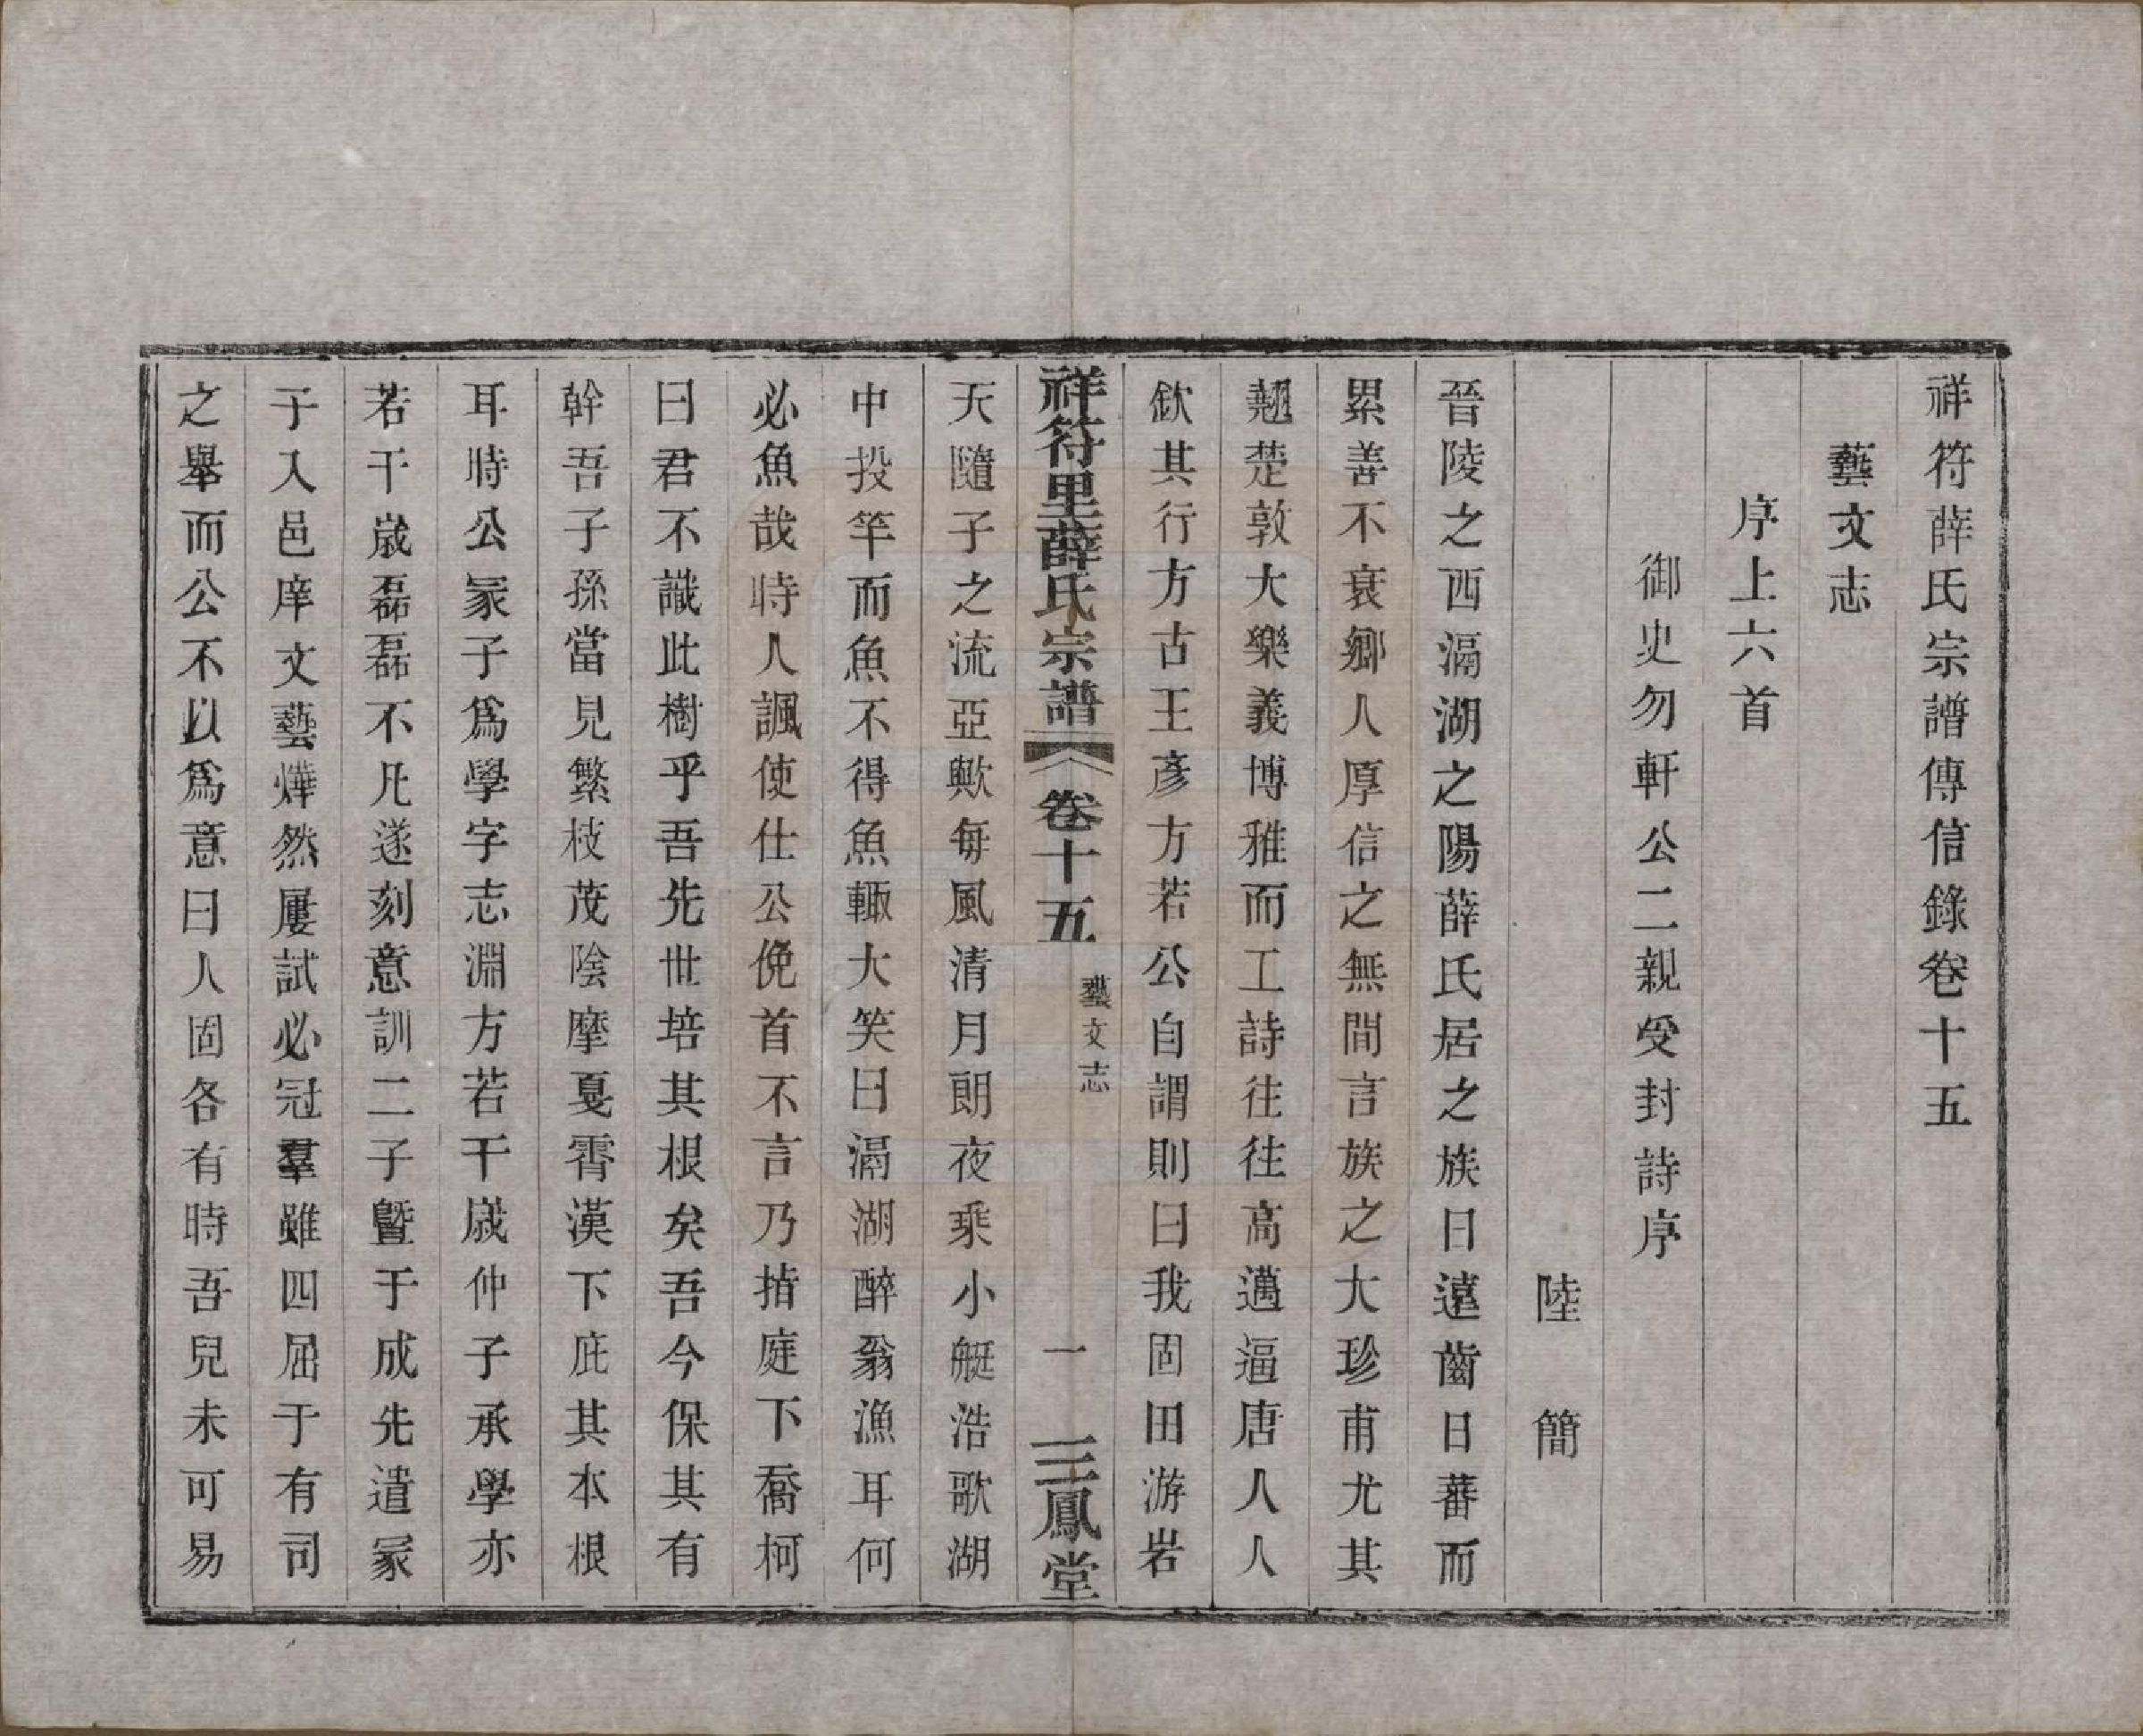 祥符薛氏宗譜傳信錄卷十五
藝文志
序上六首
御史勿軒公二親受封詩序
陸簡
晉陵之西滆湖之陽薛氏居之族日遠齒日蕃而
累善不衰鄉人厚信之無間言族之大珍甫尤其
翹楚敦大樂義博雅而工詩往往高邁逼唐人人
欽其行方古王彥方若公自謂則曰我固田游岩
祥符里薛氏宗譜 卷十五 藝文志 一 三鳳堂
天隨子之流亞歟每風清月朗夜乘小艇浩歌湖
中投竿而魚不得魚輒大笑曰滆湖醉翁漁耳何
必魚哉時人諷使仕公俛首不言乃指庭下喬柯
曰君不識此樹乎吾先世培其根矣吾今保其有
幹吾子孫當見繁枝茂陰摩戛霄漢下庇其本根
耳時公冢子爲學字志淵方若干歲仲子承學亦
若干歲磊磊不凡遂刻意訓二子曁于成先遣冢
子入邑庠文藝燁然屢試必冠羣雖四屈于有司
之舉而公不以爲意曰人固各有時吾兒未可易